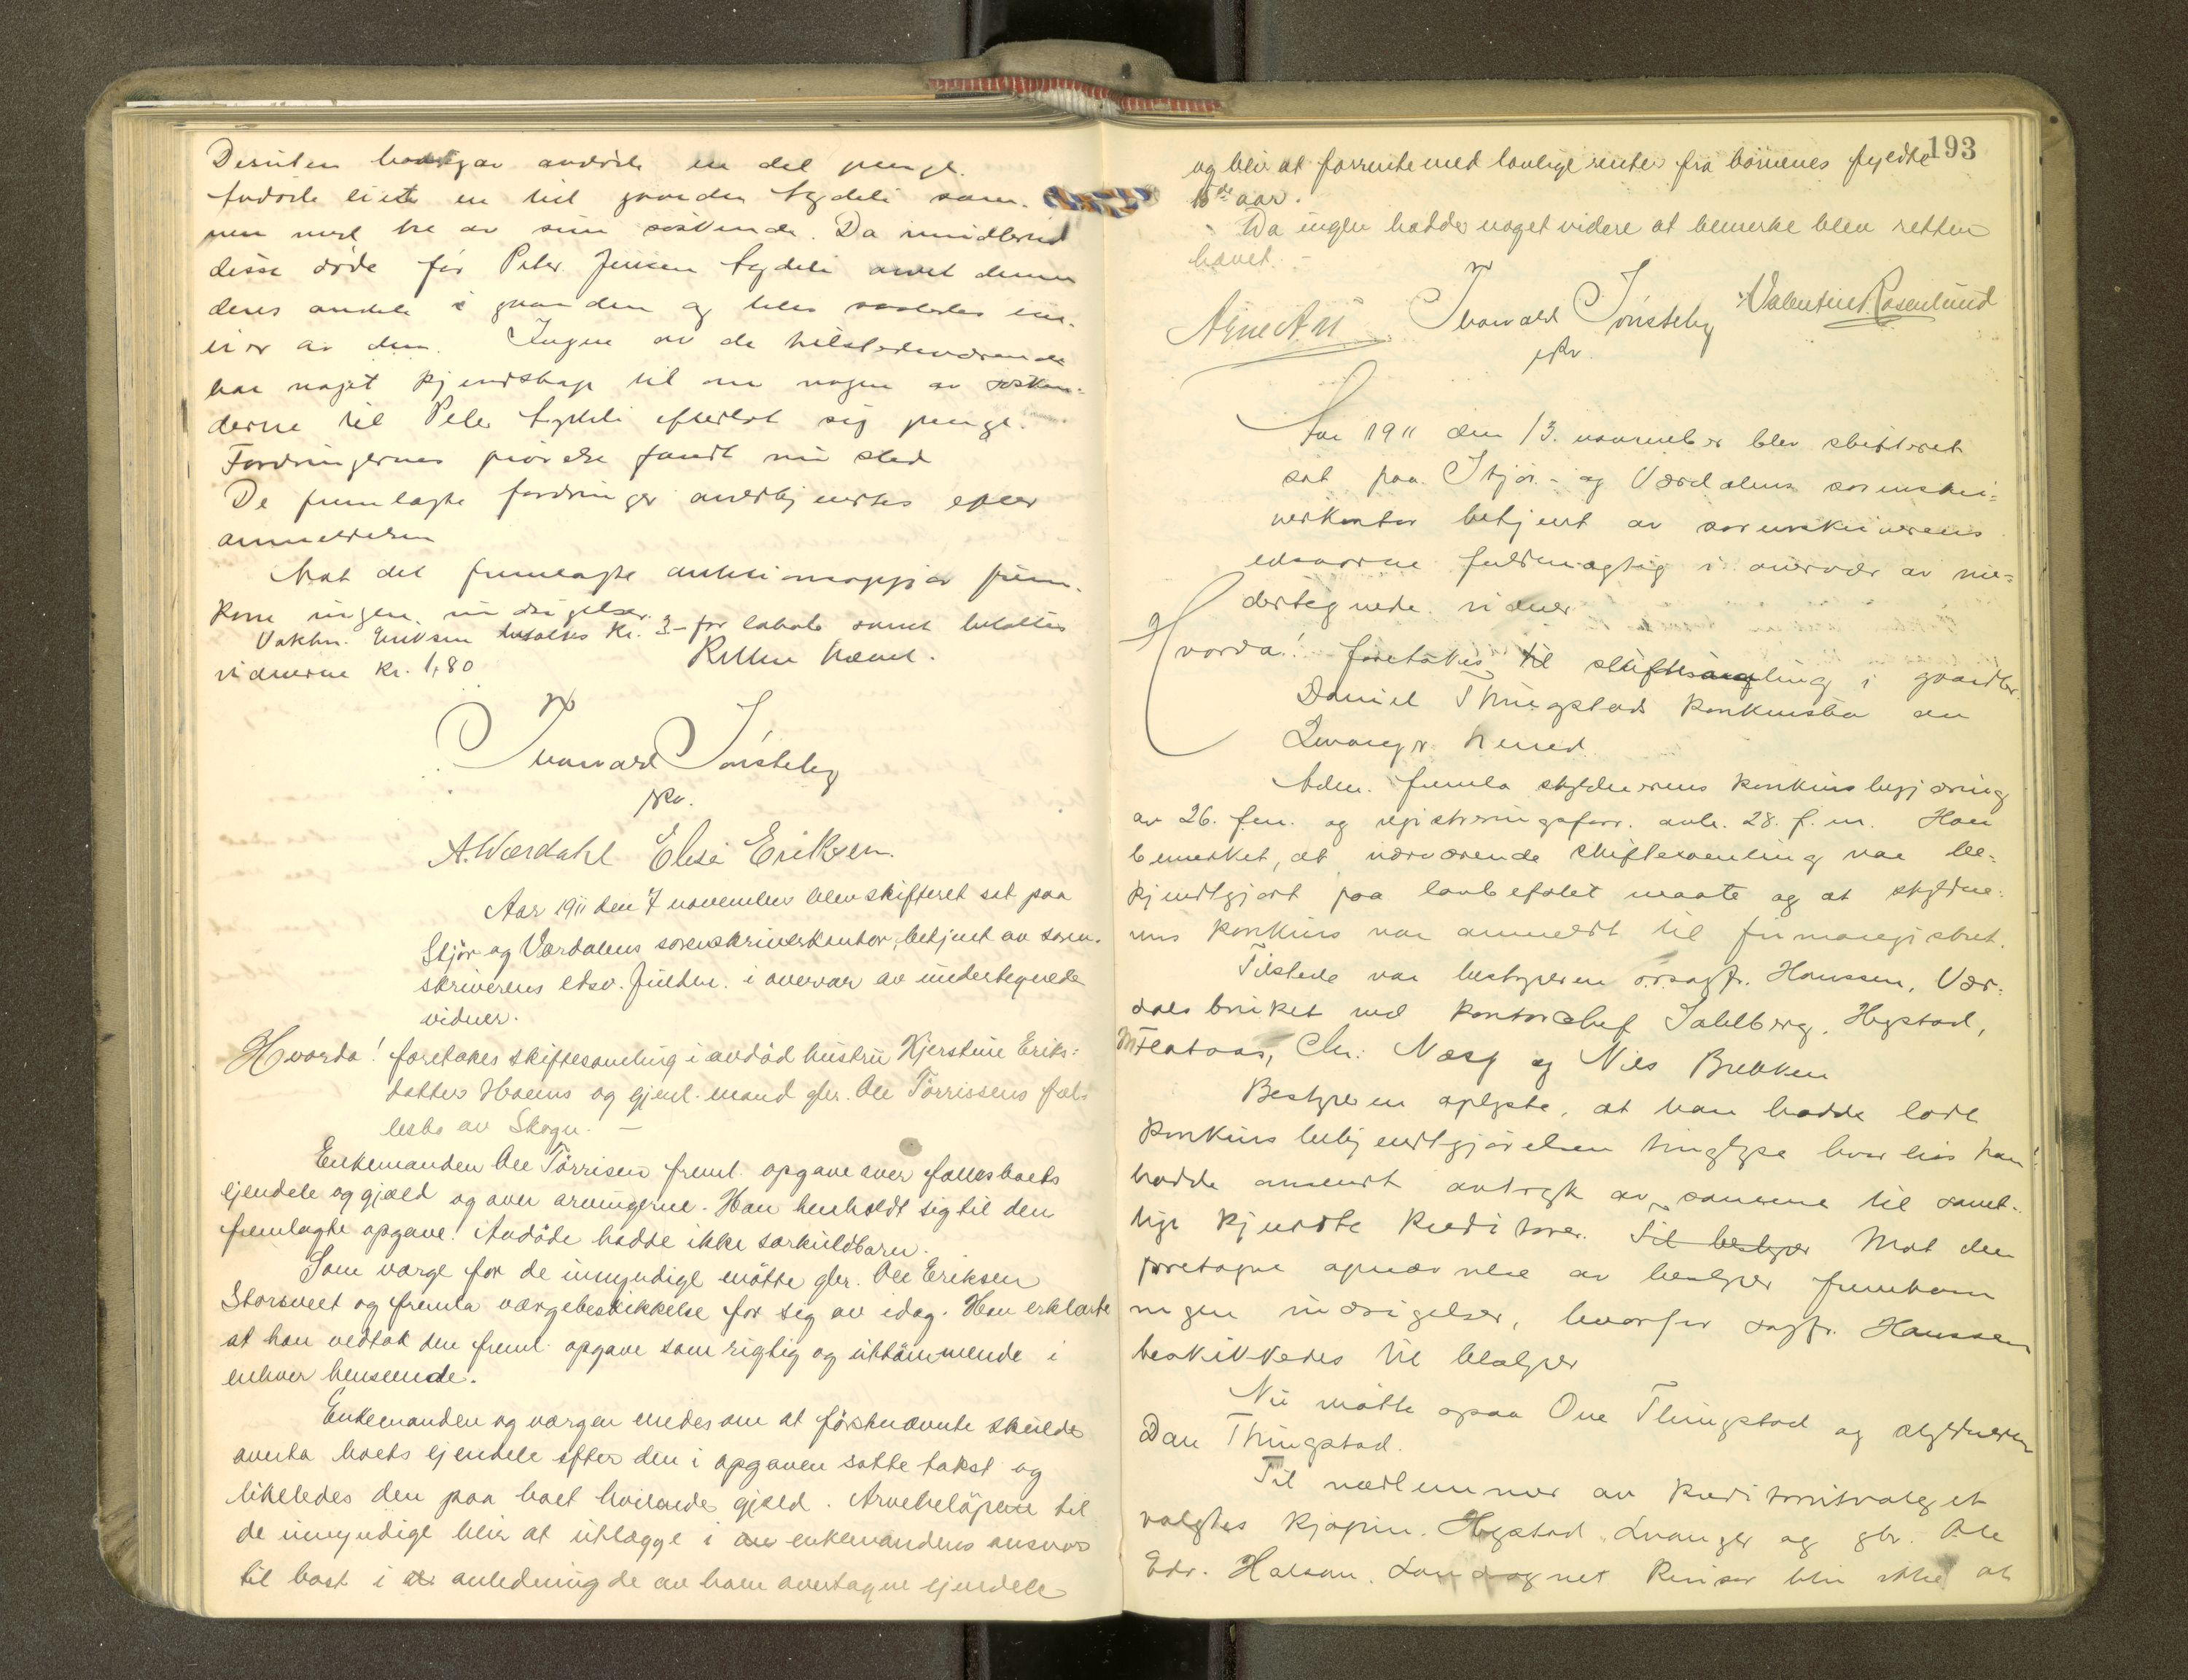 Desuten har avdøde en del penge.
Avdøde eiet en tid gaarden Lydeli sam-
men med tre av sine søskende. Da imidlertid
disse døde før Peter Jensen Lydeli arvet denne
deres andele i gaarden og blev saaledes ene-
eier av den. Ingen av de tilstedeværende
har noget kjendskap til om nogen av søsken-
derne til Peter Lydeli efterlot sig penge.
Fordringernes prøvelse fandt nu sted
De fremlagte fordringer anerkjendtes efter
anmeldelsen
Mot det fremlagte auktionsopgjør frem-
kom ingen indsigelser.
Vaktm. Eriksen betaltes kr. 3- for lokale samt betaltes
vidnerne kr. 1,80 Retten hævet.
Thorvald Tønsteby
A. Værdahl Elise Eriksen.
Aar 1911 den 7 november blev skifteret sat paa
Stjør og Værdalens sorenskriverkontor, betjent av soren-
skriverens edsv. fuldm. i overvær av undertegnede
vidner.
Hvorda! foretokes skiftesamling i avdød hustru Kjerstine Eriks-
datters Hoems og gjenl. mand gbr. Ole Tørrissens fæl-
lesbo av Skogn. —
Enkemanden Ole Tørrisen freml. opgave over fællesboets
ejendele og gjæld og over arvingerne. Han henholdt sig til den
fremlagte opgave. Avdøde hadde ikke særkuldbarn.
Som værge for de umyndige møtte gbr. Ole Eriksen
Storsveet og fremla værgebeskikkelse for sig av idag. Han erklærte
at han vedtok den freml. opgave som rigtig og uttømmende i
enhver henseende.
Enkemanden og værgen enedes om at førstnævnte skulde
overta boets ejendele efter den i opgaven satte takst og
likeledes den paa boet hvilende gjæld. Arvebeløpene til
de umyndige blir at utlægge i enkemandens ansvar
til bost i anledning de av ham overtagne ejendele
193
og blir at forrente med lovlige renter fra børnenes fyldte
15de aar.
Da ingen hadde noget videre at bemerke blev retten
hævet. -
Arne Thorvald Tønsteby Valentine Rosenlund
Aar 1911 den 13. november blev skifteret
sat paa Stjør- og Værdalens sorenskri-
verkontor betjent av sorenskriverens
edsvorne fuldmægtig i overvær av un-
dertegnede vidner
Hvorda! foretokes til skiftesamling i gaardbr.
Daniel Thingstads konkursbo av
Levanger herred.
Adm. fremla skyldnerens konkursbegjæring
av 26. f.m. og registreringsforr. avh. 28. f.m. Han
bemerket, at nærværende skiftesamling var be-
kjendtgjort paa lovbefalet maate og at skyldne-
rens konkurs var anmeldt til firmaregistret.
Tilstede var bestyreren o.r.sagf. Hanssen, Vær-
dalsbruket ved kontorchef Sahlberg, Hegstad,
Chr: Næss og Nils Brekken
Bestyreren oplyste, at han hadde latt
konkursbekjendtgjørelsen tinglyse hvorhos han
hadde omsendt avtryk av samme til samt-
lige kjendte kreditorer. Til bestyrer Mot den
foretagne opnævnelse av bestyrer fremkom
ingen indsigelser, hvorfor sagf. Hanssen
beskikkedes til bestyrer
Nu møtte ogsaa Ove Thingstad og skyldneren
Dan Thingstad.
Til medlemmer av kreditorutvalget
valgtes kjøpm. Hegstad, Levanger og gbr. Ole
Edv. Halsan. Revisor blir ikke at